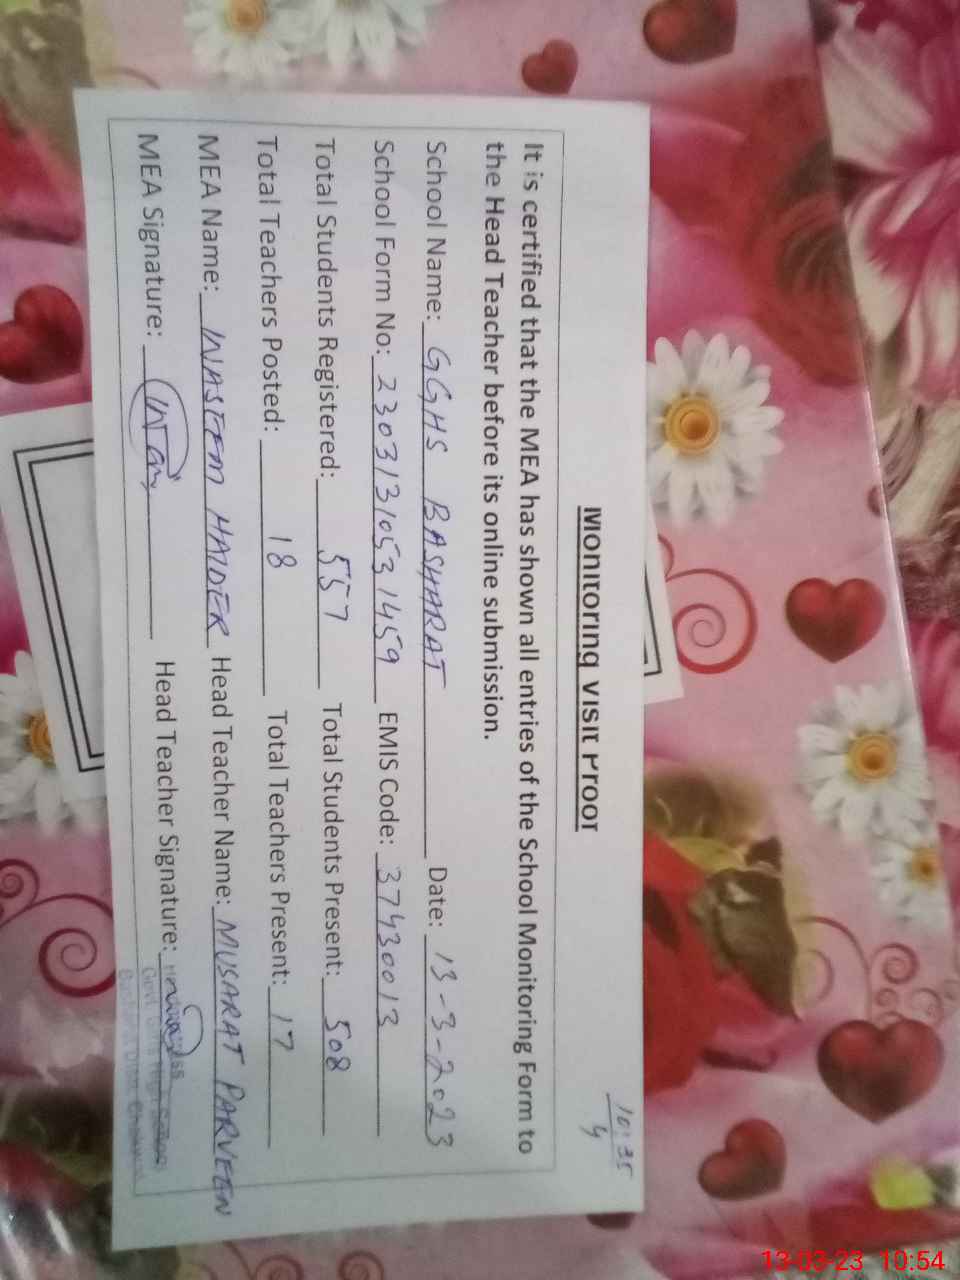 10:35
4
Monitoring Visit Proof
It is certified that the MEA has shown all entries of the School Monitoring Form to
the Head Teacher before its online submission.
School Name: GGHS BASHARAT Date: 13-3-2023
School Form No: 2303131053 1459 EMIS Code: 37430013
Total Students Registered: 557 Total Students Present: 508
Total Teachers Posted: 18 Total Teachers Present: 17
MEA Name: WASEEM HAIDER Head Teacher Name: MUSARAT PARVEEN
MEA Signature: Head Teacher Signature:
Govt. Girls High School
Basharat Distt. Chakwal
13-03-23 10:54